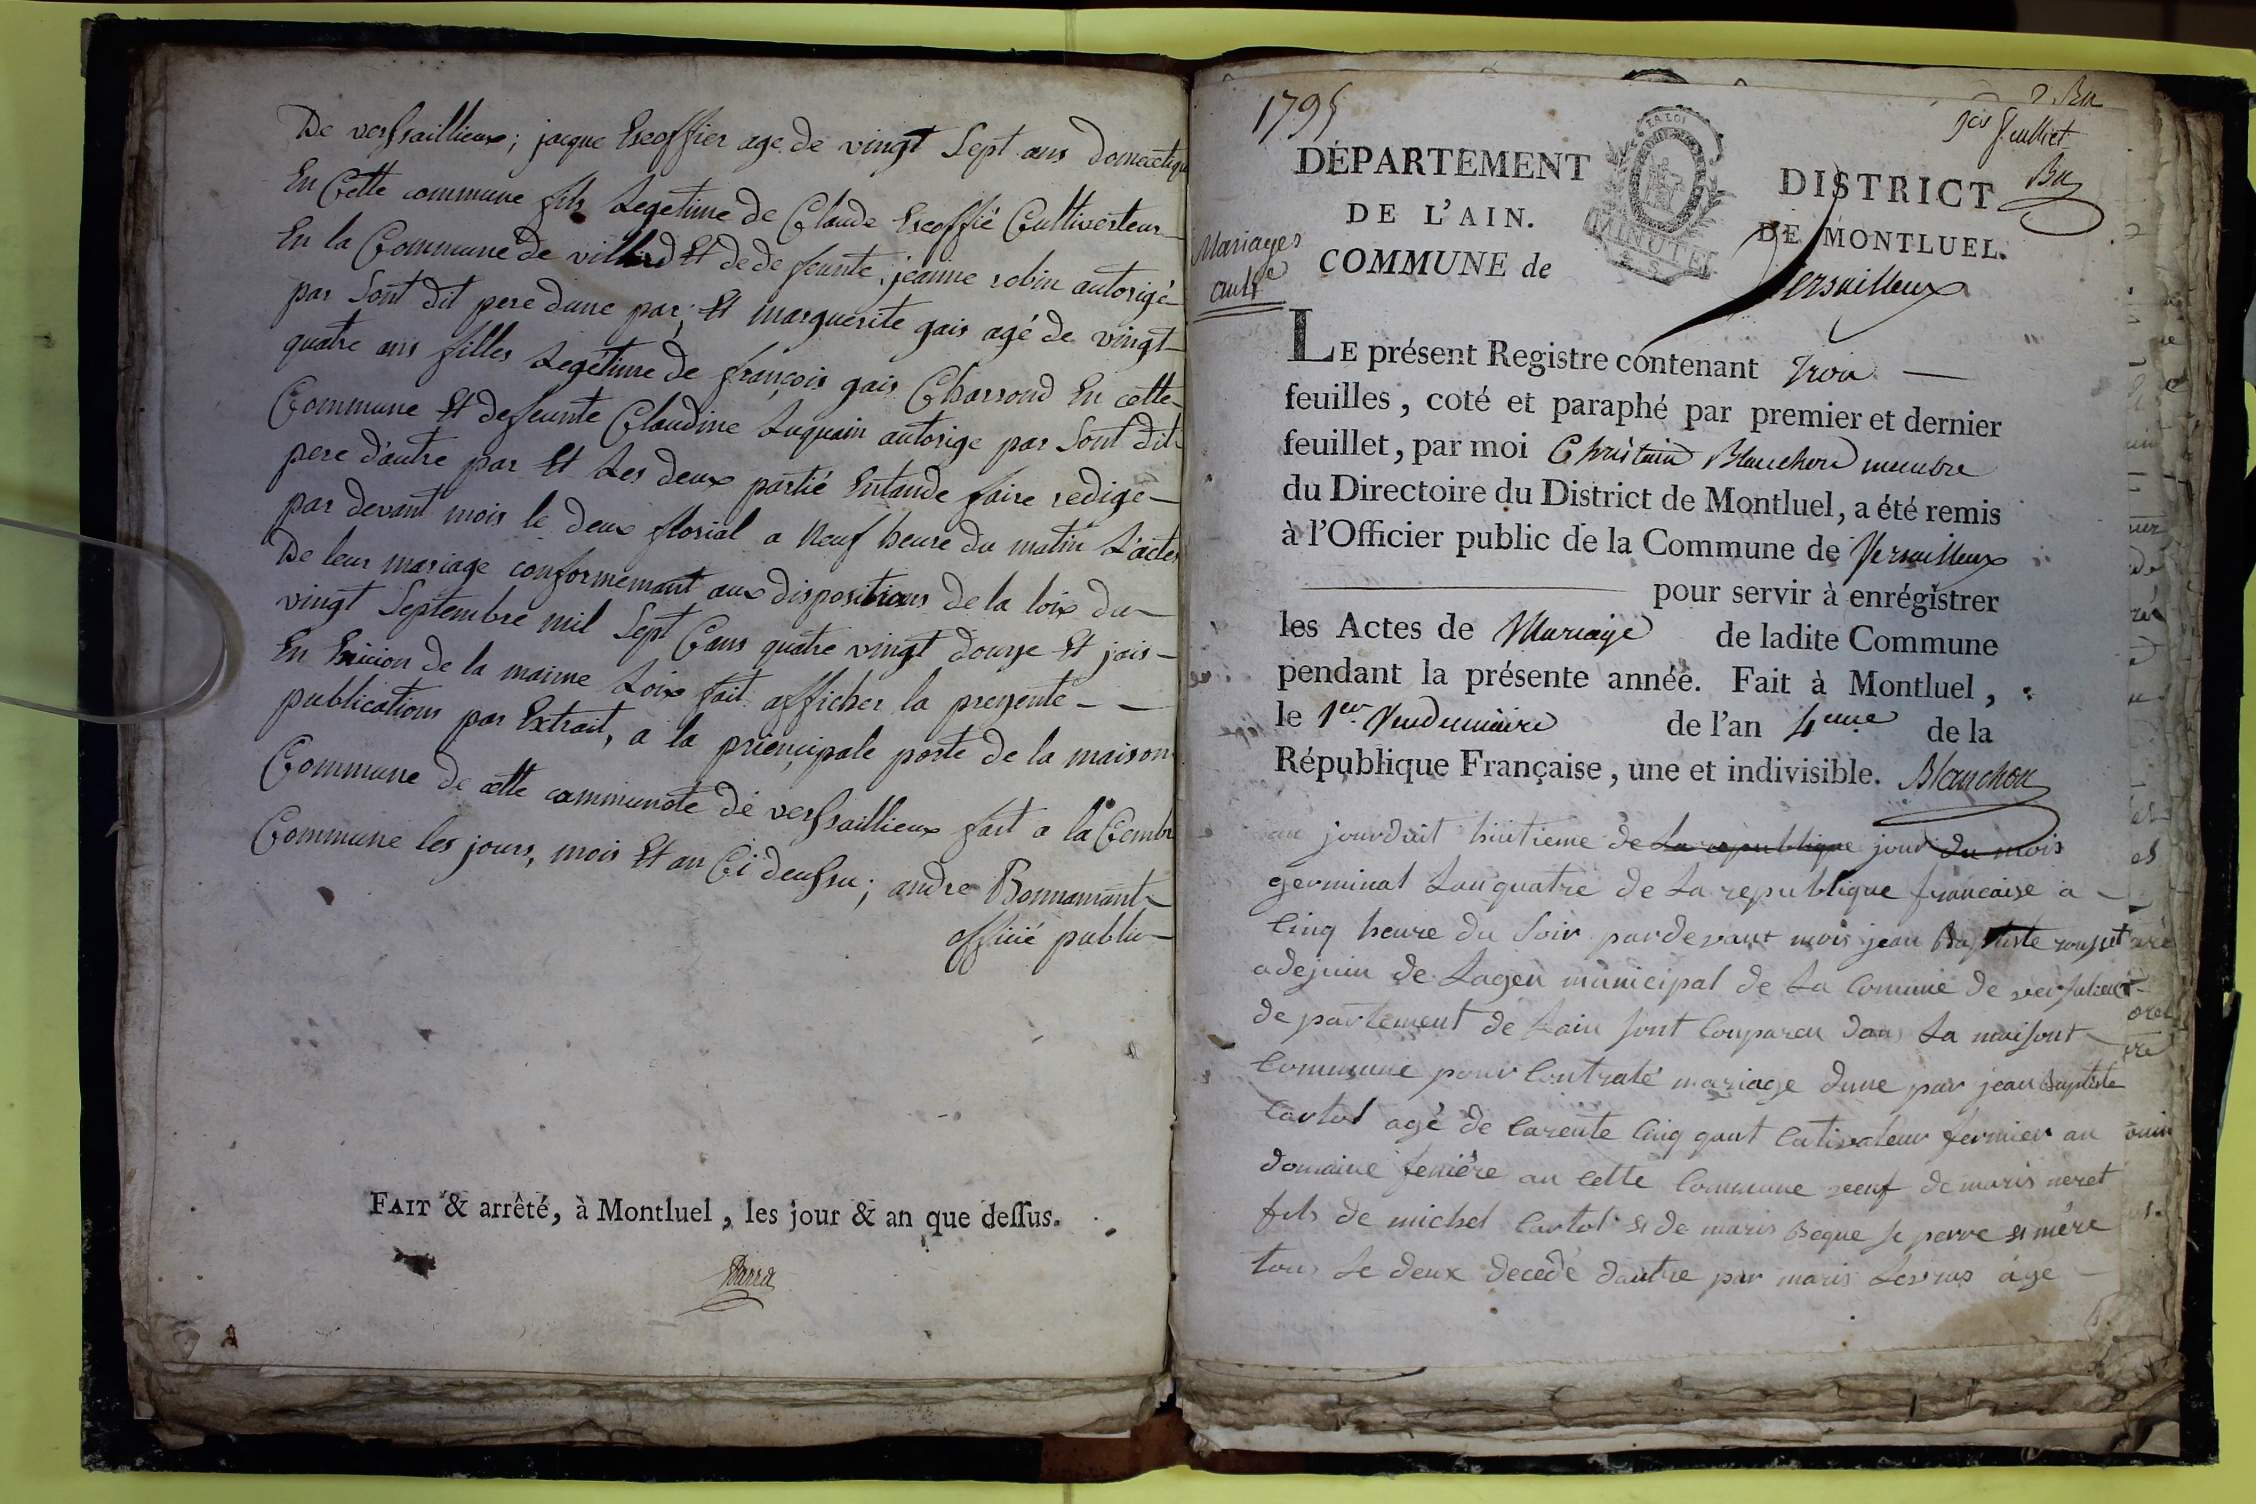 De versaillieux; jacque Escoffier age de vingt Sept ans domectique
En Cette commune fils Legetime de Claude Escoffié Cultiverteur
En la Commune de villard Et de defeunte jeanne robin autorigé
par Sont dit pere dune par; Et marguerite gais agé de vingt
quatre ans filles Legetime de françois gais Charrond En cette
Commune Et defeunte Claudine Luquain autorige par Sont dit
pere d'autre par Et Les deux partié Entande faire redige
par devant mois le deux florial a Neuf heure du matin L'actes
De leur mariage conformemant aux dispositions de la loix du
vingt Septembre mil Sept Cans quatre vingt douze Et jais
En de la maime Loix fait afficher la prezente
publications par Extrait, a la priencipale porte de la maison
Commune de cette communote de versaillieux fait a la Cembr
Commune les jours, mois Et an Ci deussu; andre Bonnamant
officié public
FAIT & arrêté, à Montluel, les jour & an que dessus.
1795
feuillet
DÉPARTEMENT
DE L'AIN.
COMMUNE de
LA LOI
MINUTE
DISTRICT
DE MONTLUEL.
Versailleux
Mariages
an 4e
LE présent Registre contenant Trois
feuilles, coté et paraphé par premier et dernier
feuillet, par moi Christain Blanchon membre
du Directoire du District de Montluel, a été remis
à l'Officier public de la Commune de Versailleux
pour servir à enrégistrer
les Actes de Mariage de ladite Commune
pendant la présente année. Fait à Montluel,
le 1er Vendemiaire de l'an 4eme de la
République Française, une et indivisible. Blanchon
au jourduit huitieme de La republique jour du mois
germinal Lan quatre de La republique francaise a
Cinq heure du Soir pardevant mois jean Baptiste rousset
adejuin de Lagen municipal de La Comune de versalieux
departement de Lain sont Conpareu dans La maisont
Commune pour Contraté mariage dune par jean Baptiste
Cartol agé de Carente Cinq qant Cativateur fermier au
domaine feniére an Cette Commune veuf de maris neret
fils de michel Cartol et de maris Beque se perre et mére
tous Le deux decedé dautre par maris Lesvras áge